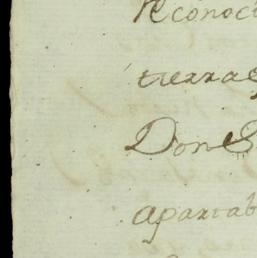 Reconoci
tierras
Don
apartab